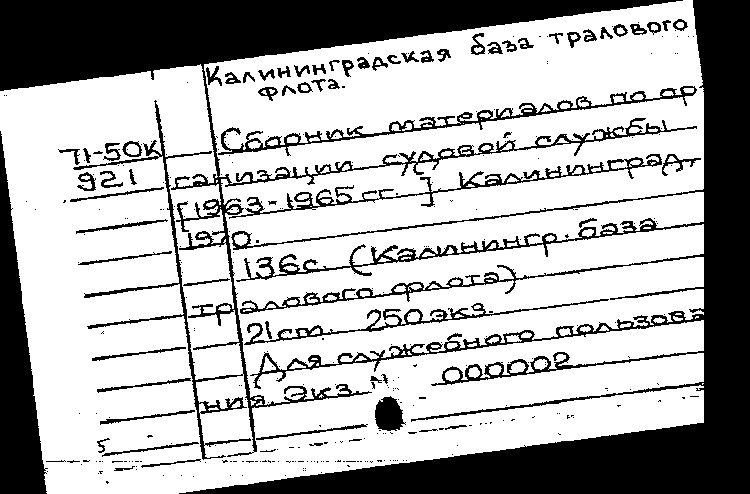 Калининградская база тралового
флота.
71-50к
921
Сборник материалов по ор-
ганизации судовой службы
[1963-1965 гг. ] Калининград,
1970.
136с. (Калинингр. база
тралового флота).
21 cm. 250 экз.
Для служебного пользова
ния. Экз. N 000002
5